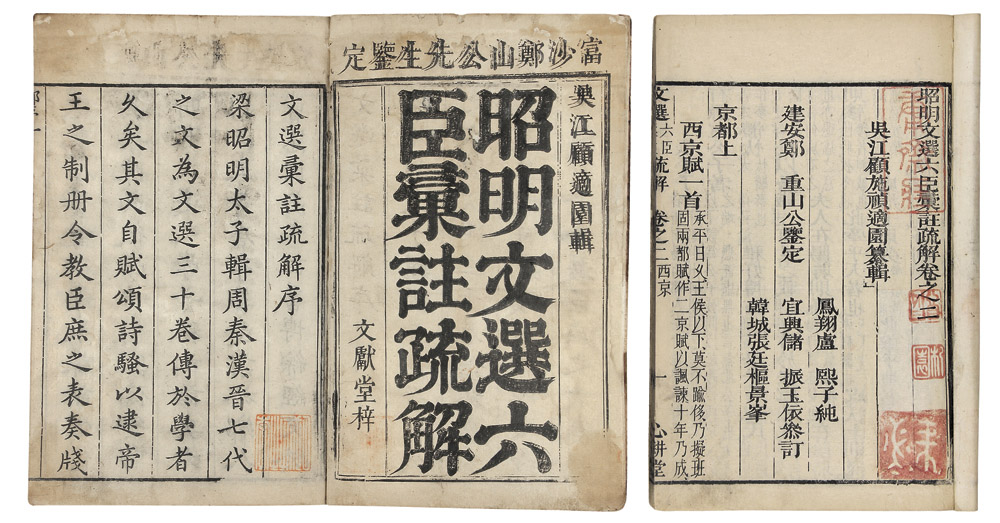 富沙鄭山公先生鑒定
吳江顧適園輯
昭明文選六
臣彙註疏解
文獻堂梓
文選彙註疏解序
梁昭明太子輯周秦漢晉七代
之文為文選三十卷傳於學者
久矣其文自賦頌詩騷以逮帝
王之制册令教臣庶之表奏牋
昭明文選六臣彙註疏解卷之二
吳江顧施禎適園纂輯
鳳翔盧 熙子純
建安鄭 重山公鑒定 宜興儲 振玉依叅訂
韓城張廷樞景峯
京都上
西京賦一首
承平日乆王侯以下莫不踰侈乃擬班
固兩都賦作二京賦以諷諫十年乃成
文選六臣疏解 卷之二西京 一 心耕堂